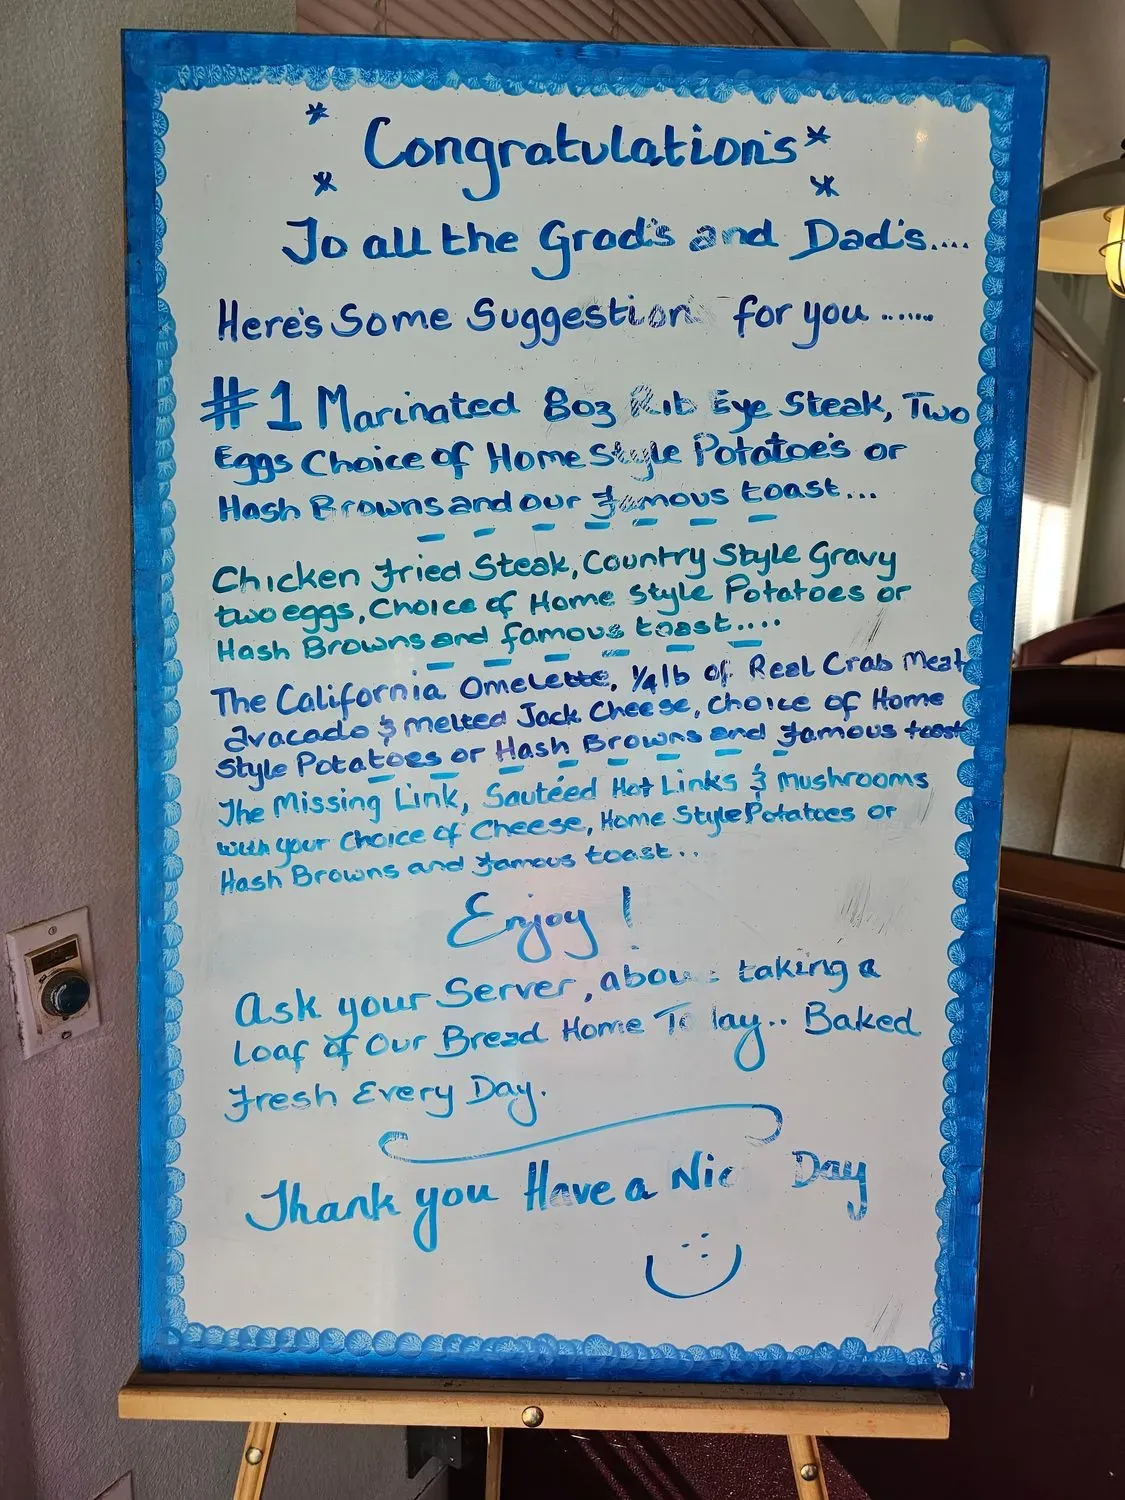 * Congratulation's *
* *
To all the Grad's and Dad's....
Here's Some Suggestion for you ......
#1 Marinated 8oz Rib Eye Steak, Two
Eggs Choice of Home Style Potatoe's or
Hash Browns and our famous toast...
Chicken Fried Steak, Country Style Gravy
two eggs, Choice of Home Style Potatoes or
Hash Browns and famous toast....
The California Omelette, 1/4 lb of Real Crab Meat
Avacado & melted Jack Cheese, choice of Home
Style Potatoes or Hash Browns and famous toast
The Missing Link, Sautéed Hot Links & Mushrooms
with your Choice of Cheese, Home Style Potatoes or
Hash Browns and famous toast..
Enjoy!
Ask your Server, about taking a
Loaf of Our Bread Home Today.. Baked
Fresh Every Day.
Thank you Have a Nic Day